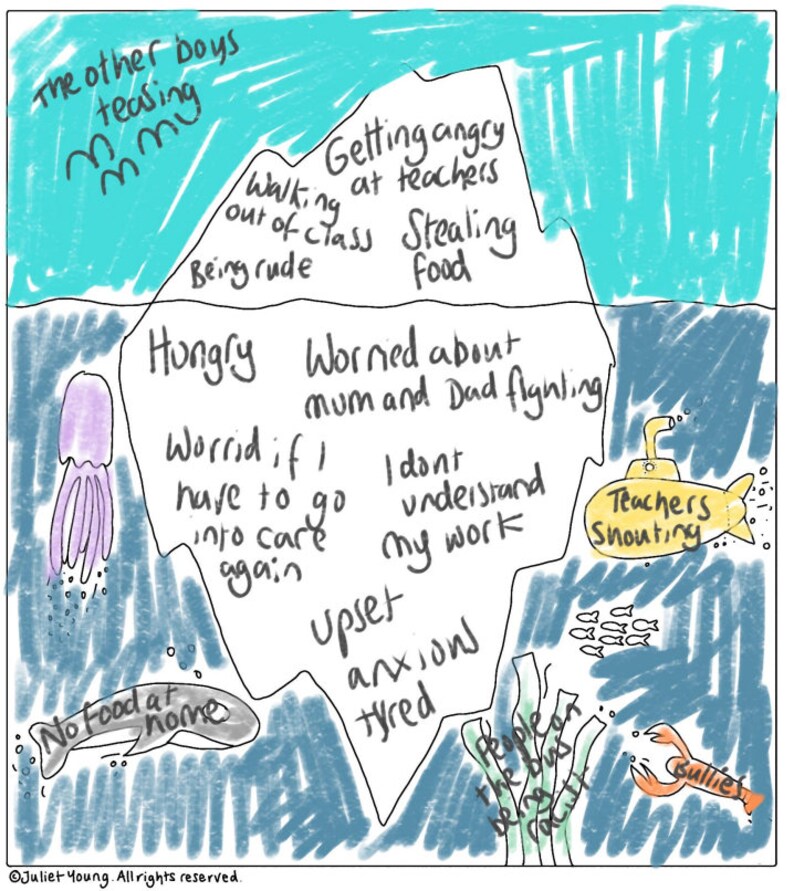 The other boys
teasing
Getting angry
at teachers
Walking
out of class
Stealing
food
Being rude
Hungry
Worried about
mum and Dad fighting
Worrid if I
have to go
into care
again
I dont
understand
my work
Teachers
Shouting
upset
anxious
tyred
No food at
home
People on
the bus
being
racist
Bullies
©Juliet Young. All rights reserved.